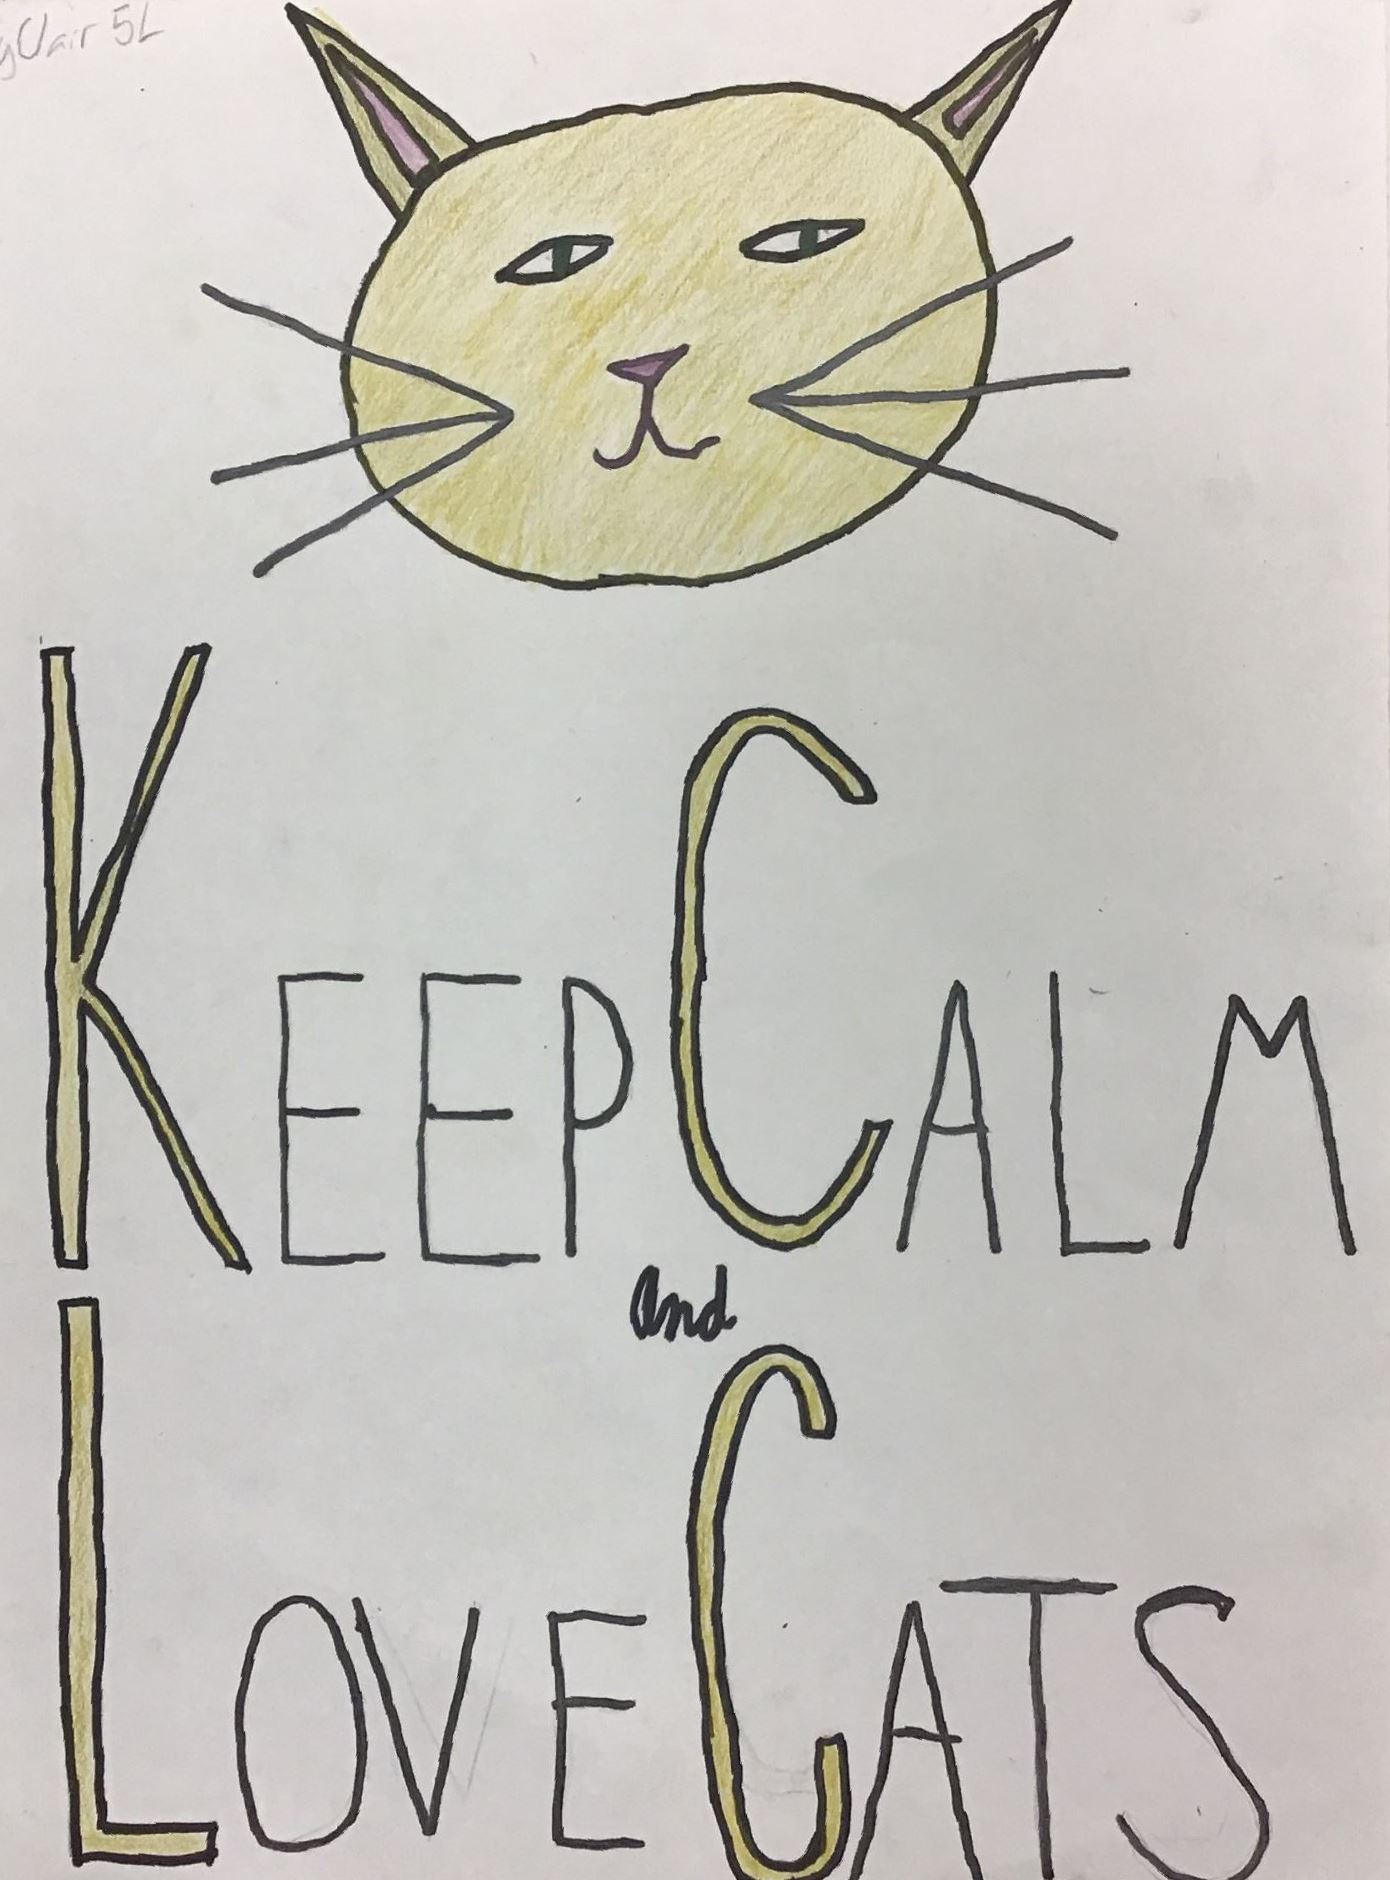 5L
KEEP CALM
and
LOVE CATS